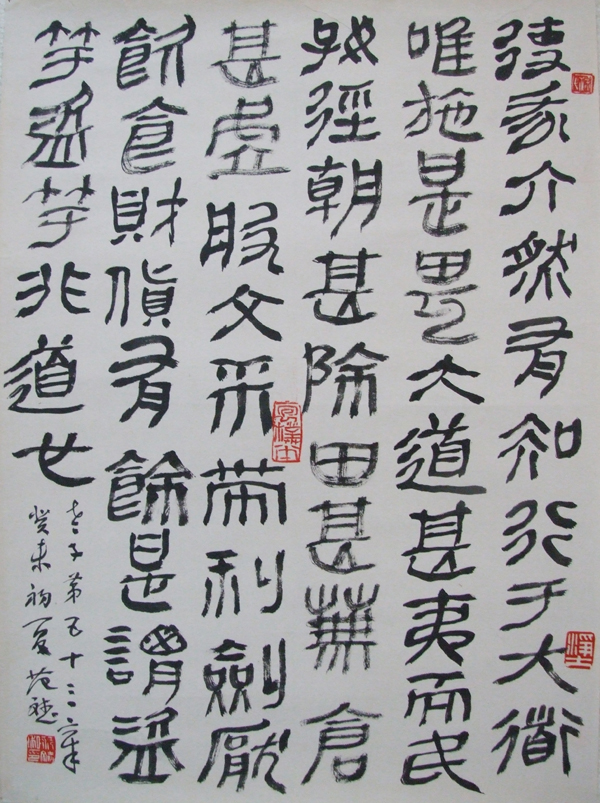 使我介然有知行于大道
唯施是畏大道甚夷而民
好徑朝甚除田甚蕪倉
甚虛服文采帶利劍厭
飲食財貨有餘是謂盜
竽盜竽非道也
老子第五十三章
癸未初夏范